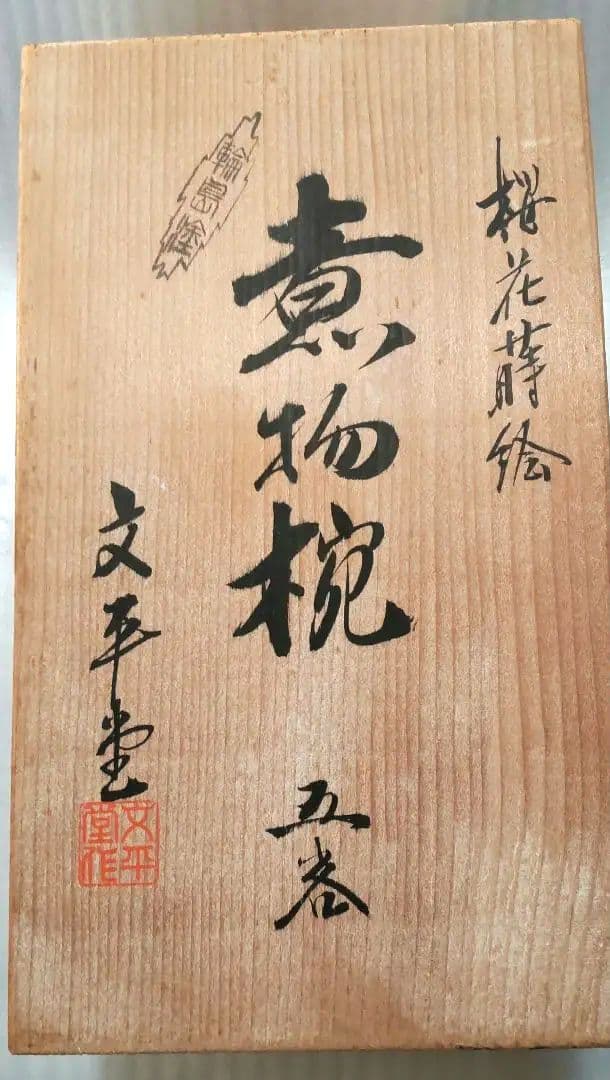 桜花蒔絵
輪島塗
煮物椀
五客
文平堂
文平堂作